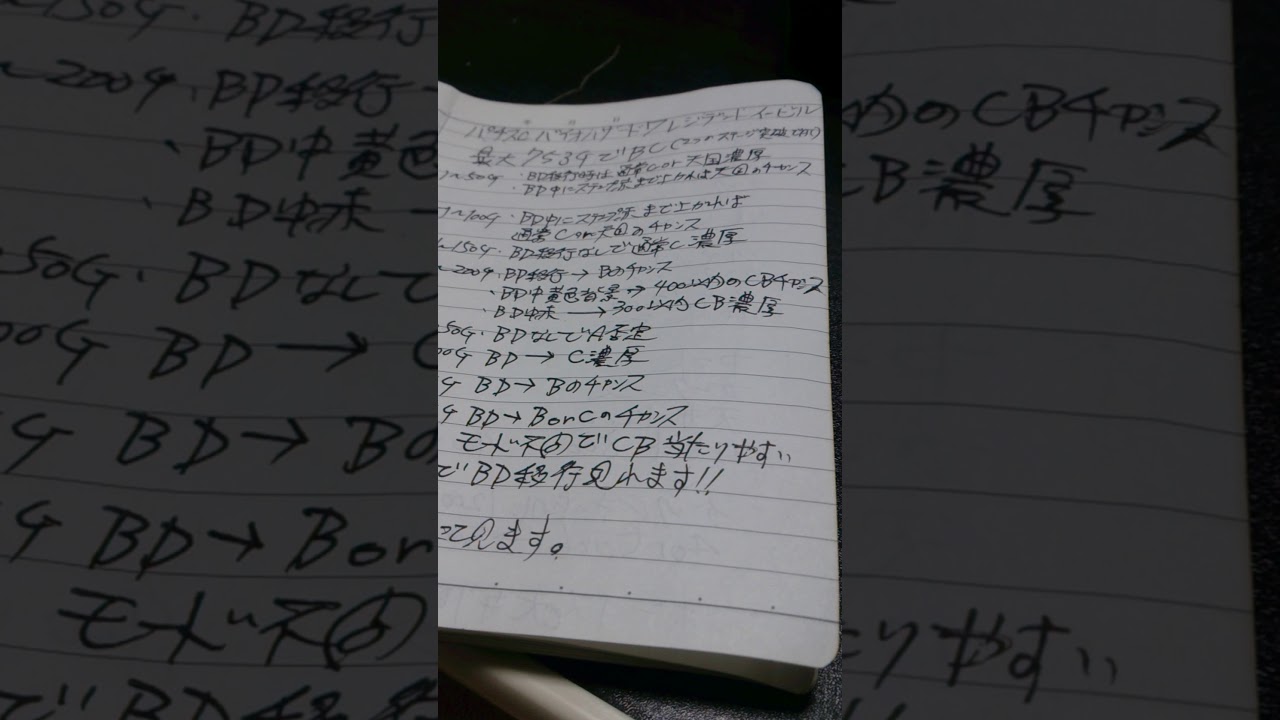 パチスロ バイオハザードヴィレンデッドイービル
最大753GでBC(2つのステージ突破で有り)
1~50G・BD移行時は通常C or 天国濃厚
・BD中にステップ赤まで上がれば天国のチャンス
1~100G・BD中にステップ赤まで上がれば
通常C or 天国のチャンス
~150G・BD移行なしで通常C濃厚
~200G・BD移行→Bのチャンス
・BD中黄色背景→400以内のCBチャンス
・BD中赤→300以内CB濃厚
50G・BDなしでA否定
00G BD→C濃厚
G BD→Bのチャンス
G BD→BorCのチャンス
モード不問でCB当たりやすい
でBD移行見れます!!
って見ます。